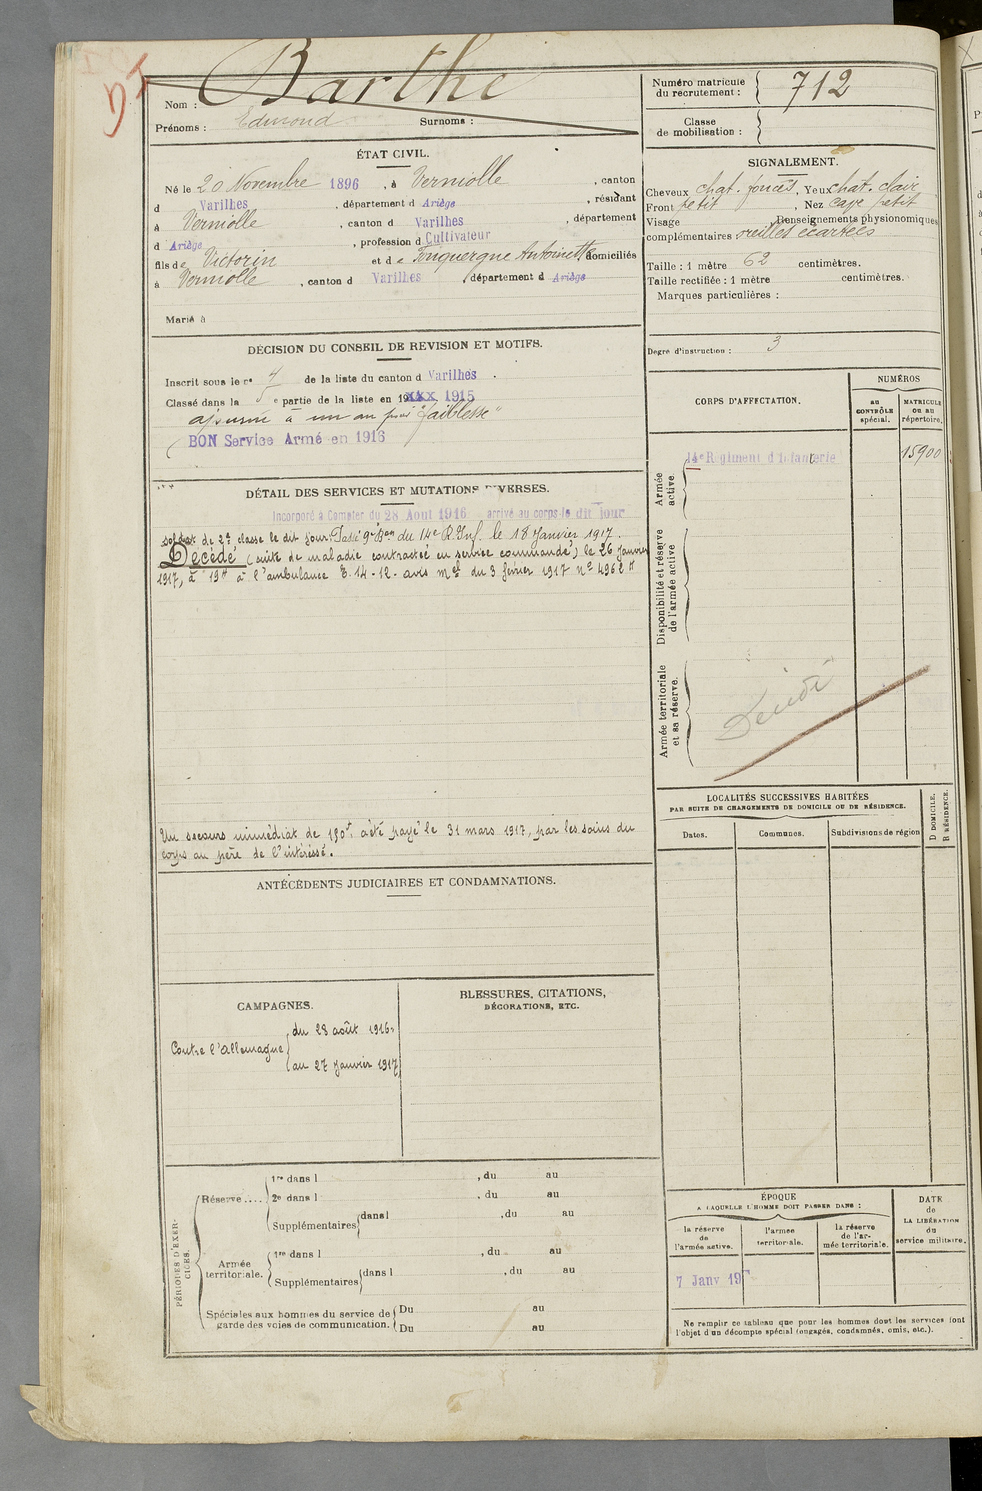 DI
Nom : Barthe
Prénoms : Edmond Surnoms :
Numéro matricule
du recrutement : 712
Classe
de mobilisation :
ÉTAT CIVIL.
Né le 20 Novembre 1896, à Verniolle, canton
d Varilhes, département d Ariège, résidant
à Verniolle, canton d Varilhes, département
d Ariège, profession d Cultivateur
fils de Victorin et de Antoinette domiciliés
à Verniolle, canton d Varilhes, département d Ariège
Marié à
SIGNALEMENT.
Cheveux chat. foncés, Yeux chat. clair
Front petit, Nez petit
Visage Renseignements physionomiques
complémentaires oreilles écartées
Taille : 1 mètre 62 centimètres.
Taille rectifiée : 1 mètre centimètres.
Marques particulières :
Degré d'instruction : 3
DÉCISION DU CONSEIL DE REVISION ET MOTIFS.
Inscrit sous le n° de la liste du canton d Varilhes.
Classé dans la 5e partie de la liste en 19 XXX 1915
ajourné à un an pour "faiblesse"
BON Service Armé en 1916
CORPS D'AFFECTATION.
NUMÉROS
au
CONTRÔLE
spécial.
MATRICULE
ou au
répertoire.
Armée
active.
14e Régiment d'Infanterie 15900
Disponibilité et réserve
de l'armée active.
Armée territoriale
et sa réserve.
Décédé
DÉTAIL DES SERVICES ET MUTATIONS DIVERSES.
Incorporé à Compter du 28 Août 1916 arrivé au corps le dit jour
soldat de 2e classe le dit jour. Passé 9e Bon du 14e R. Inf. le 18 Janvier 1917.
Décédé (suite de maladie contractée en service commandé) le 26 Janvier
1917, à 19h à l'ambulance E. 14-12. avis mel du 3 février 1917 n° 4962 H
Un secours immédiat de 150f, a été payé le 31 mars 1917, par les soins du
corps au père de l'intéressé.
LOCALITÉS SUCCESSIVES HABITÉES
PAR SUITE DE CHANGEMENTS DE DOMICILE OU DE RÉSIDENCE.
Dates. Communes. Subdivisions de région
D DOMICILE.
R RÉSIDENCE.
ANTÉCÉDENTS JUDICIAIRES ET CONDAMNATIONS.
CAMPAGNES.
Contre l'Allemagne
du 28 août 1916
au 27 Janvier 1917
BLESSURES, CITATIONS,
DÉCORATIONS, ETC.
PÉRIODES D'EXER-
CICES.
Réserve....
1re dans l , du au
2e dans l , du au
Supplémentaires dans l , du au
Armée
territoriale.
1re dans l , du au
Supplémentaires dans l , du au
Spéciales aux hommes du service de
garde des voies de communication.
Du au
Du au
ÉPOQUE
A LAQUELLE L'HOMME DOIT PASSER DANS :
la réserve
de
l'armée active.
l'armée
territoriale.
la réserve
de l'ar-
mée territoriale.
DATE
de
LA LIBÉRATION
du
service militaire.
7 Janv 19
Ne remplir ce tableau que pour les hommes dont les services font
l'objet d'un décompte spécial (engagés, condamnés, omis, etc.).